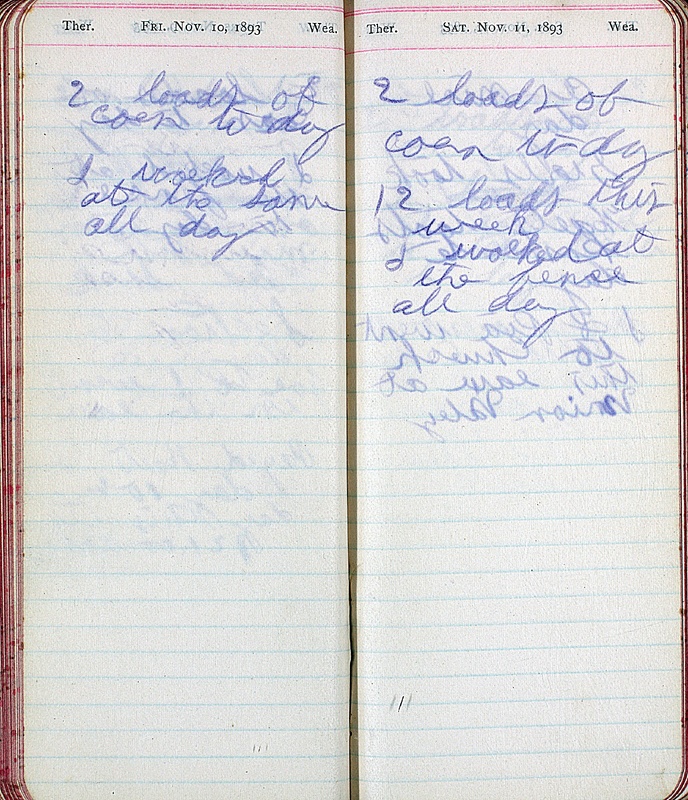 Ther. Fri. Nov. 10, 1893 Wea.
2 loads of
corn to day
I worked
at the same
all day
Ther. Sat. Nov. 11, 1893 Wea.
2 loads of
corn to day
12 loads this
week
I worked at
the fence
all day